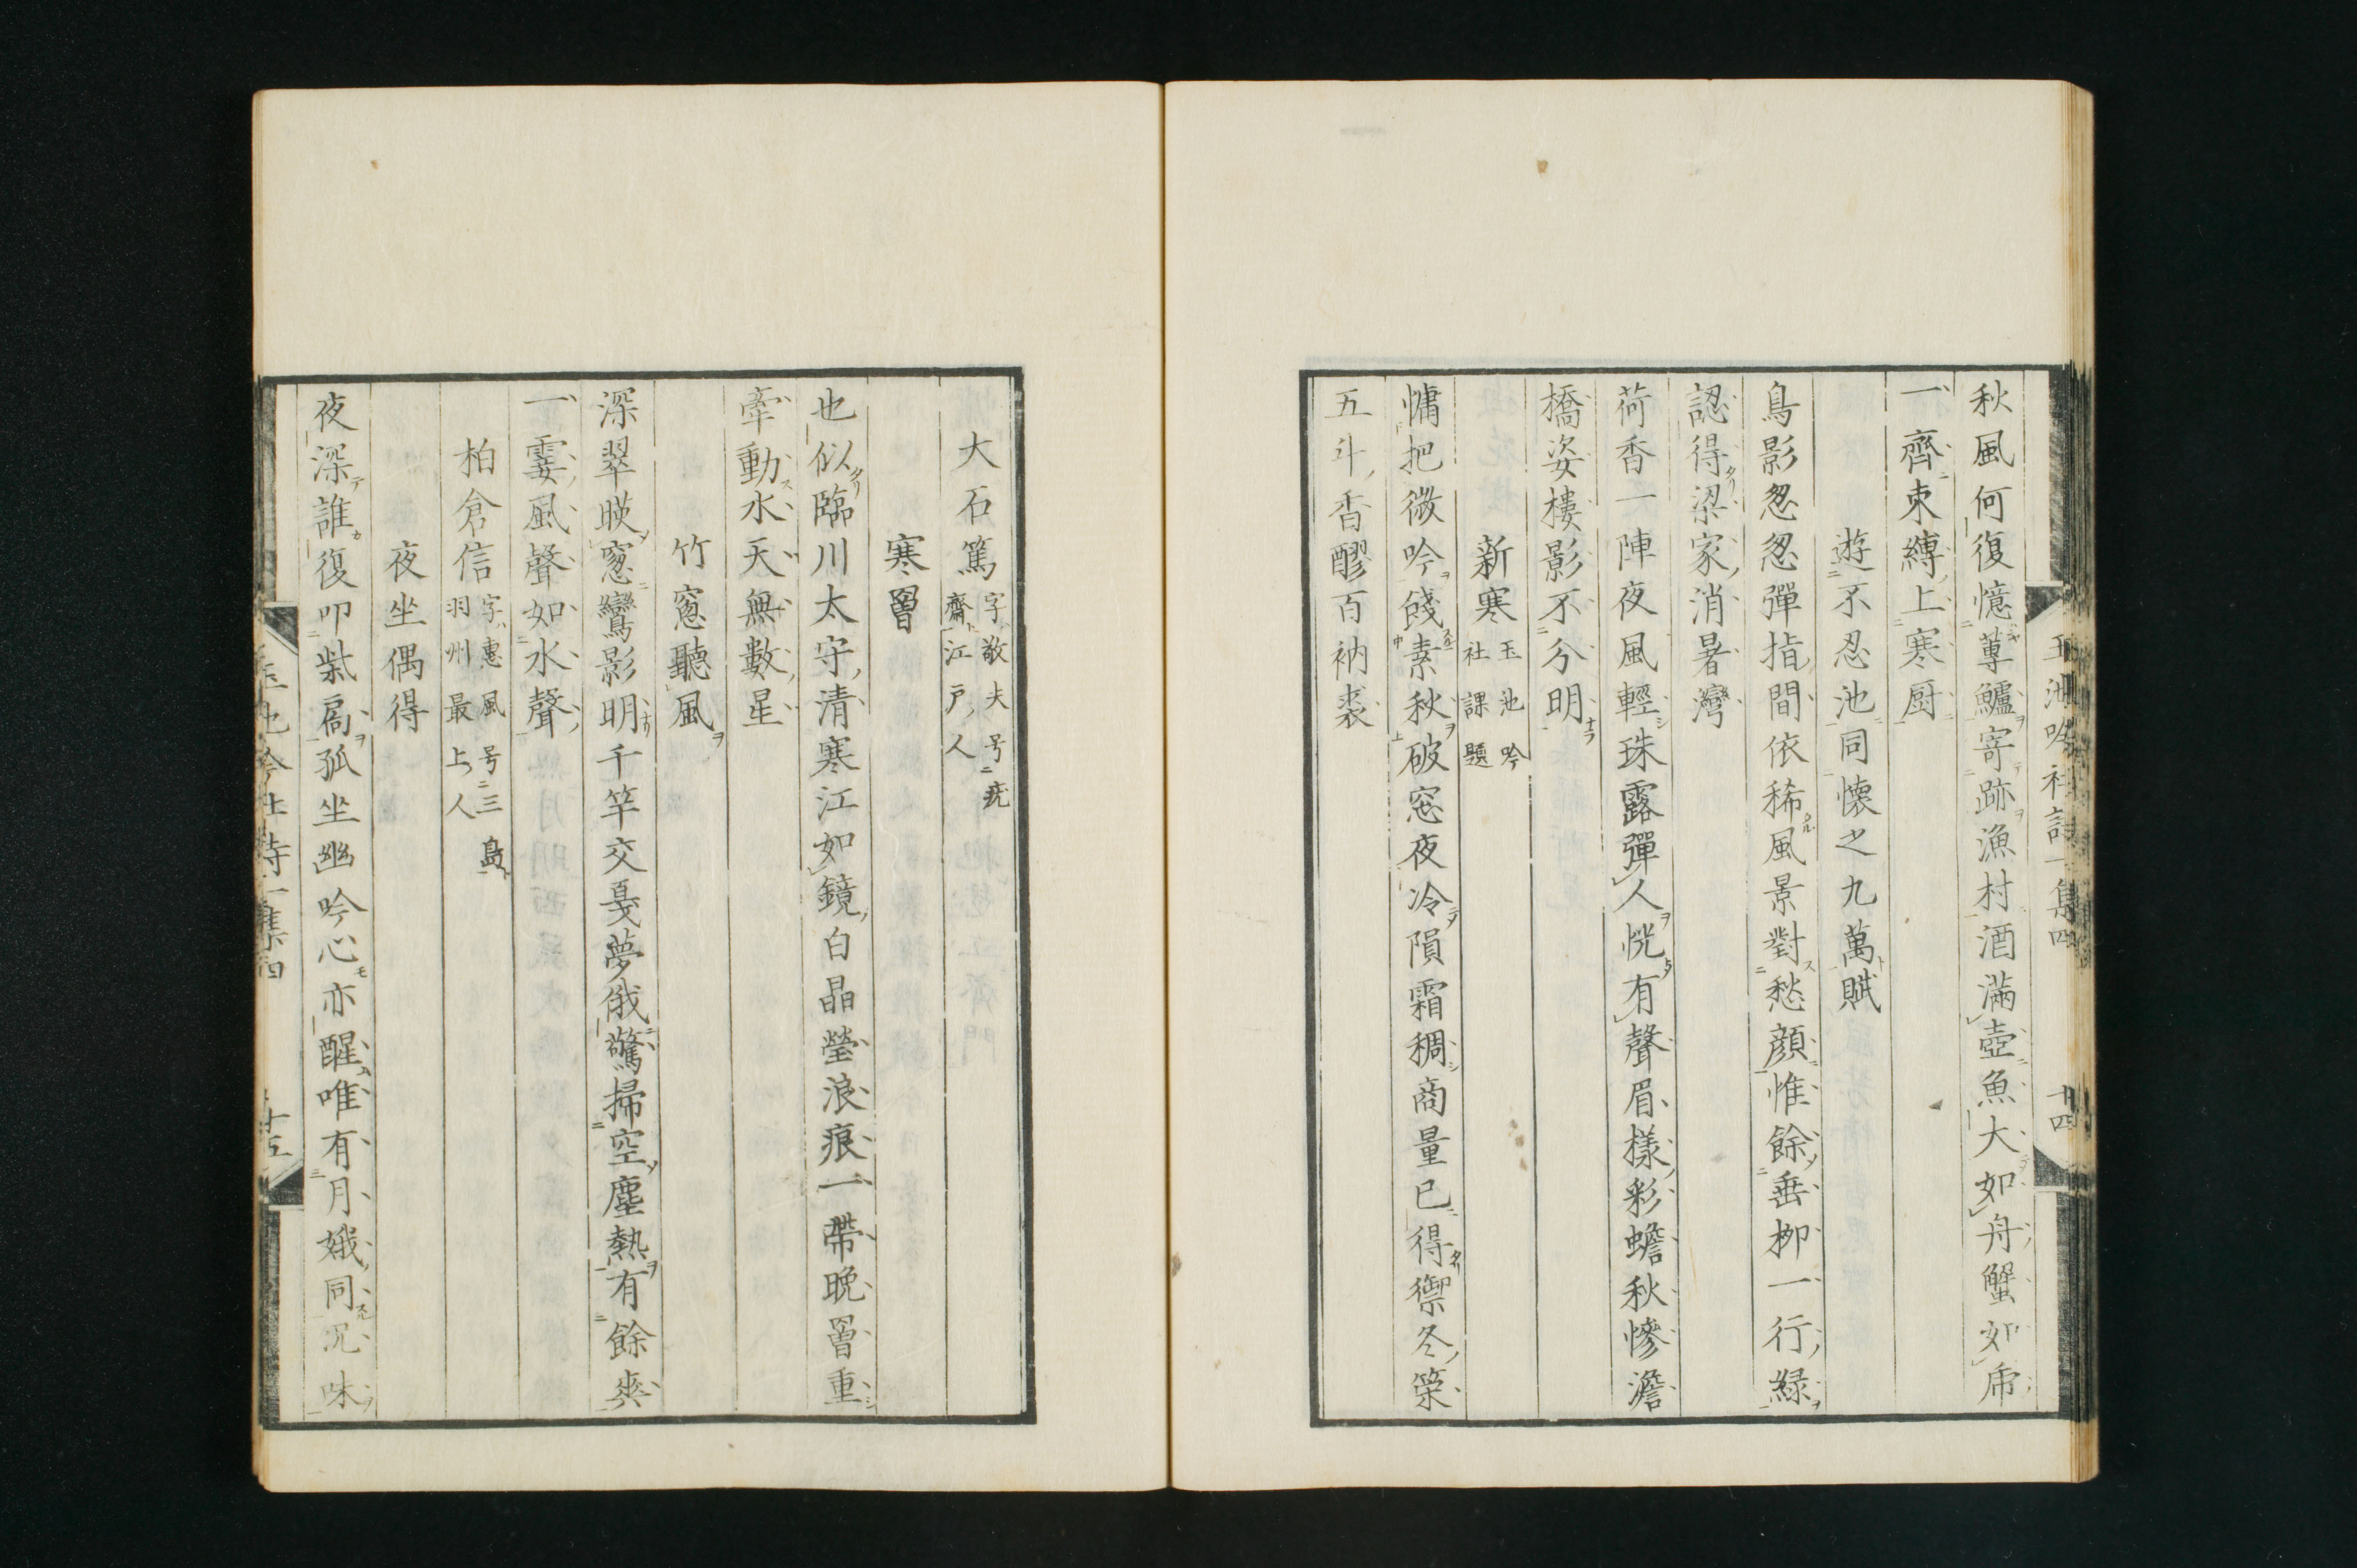 秋風何復憶蓴鱸寄跡漁村酒滿壺魚大如舟蟹如席
一齊束縛上寒厨
遊不忍池同懐之九萬賦
鳥影怱怱彈指間依稀風景對愁顔惟餘垂柳一行緑
認得梁家消暑灣
荷香一陣夜風輕珠露彈人恍有聲眉樣彩蟾秋慘澹
橋姿樓影不分明
新寒 玉池吟社課題
慵把微吟餞素秋破窓夜冷隕霜稠商量已得禦冬策
五斗香醪百衲裘
玉池吟社詩一集四 十四
大石篤 字敬夫号疣齋江戸人
寒罾
也似臨川太守清寒江如鏡白晶瑩浪痕一帶晩罾重
牽動水天無數星
竹窓聽風
深翠暎窓鸞影明千竿交戛夢俄驚掃空塵熱有餘爽
一霎風聲如水聲
柏倉信 字惠風号三島羽州最上人
夜坐偶得
夜深誰復叩柴扄孤坐幽吟心亦醒唯有月娥同沉味
玉池吟社詩一集四 十五